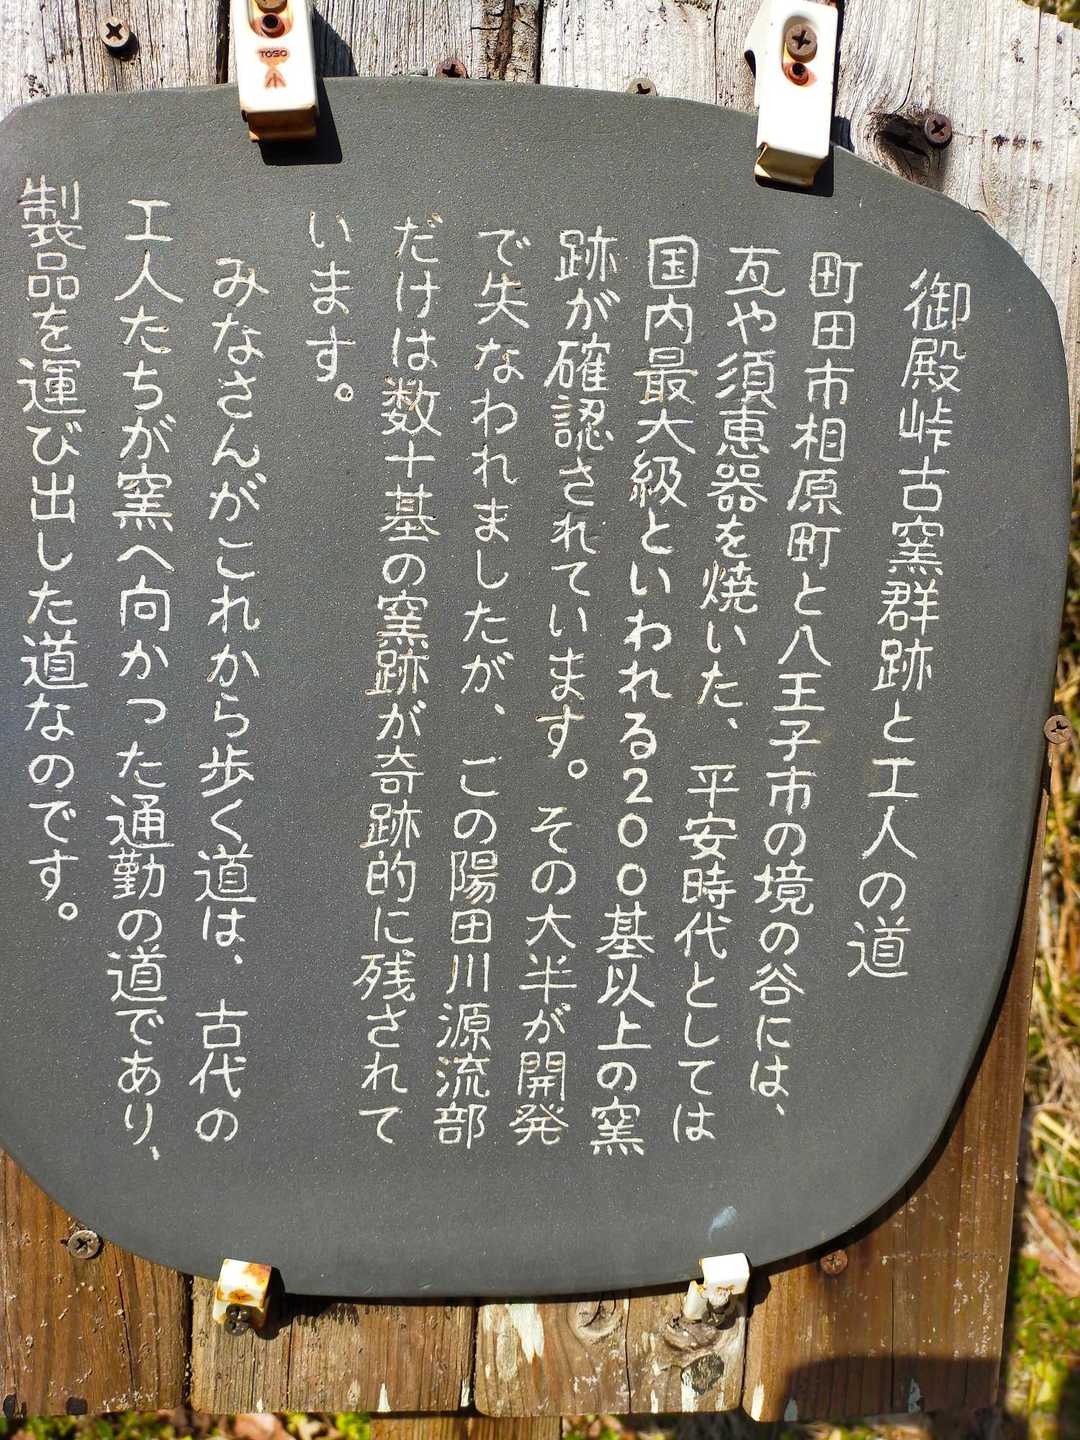 御殿峠古窯群跡と工人の道
町田市相原町と八王子市の境の谷には、
瓦や須恵器を焼いた、平安時代としては
国内最大級といわれる200基以上の窯
跡が確認されています。その大半が開発
で失なわれましたが、この陽田川源流部
だけは数十基の窯跡が奇跡的に残されて
います。
みなさんがこれから歩く道は、古代の
工人たちが窯へ向かった通勤の道であり、
製品を運び出した道なのです。
TOSO